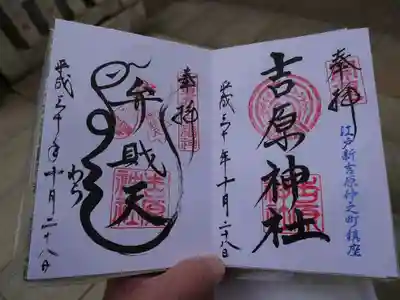 奉拝
江戸新吉原仲之町鎮座
吉原神社
平成三十年十月二十八日
奉拝
弁財天
平成三十年十月二十八日